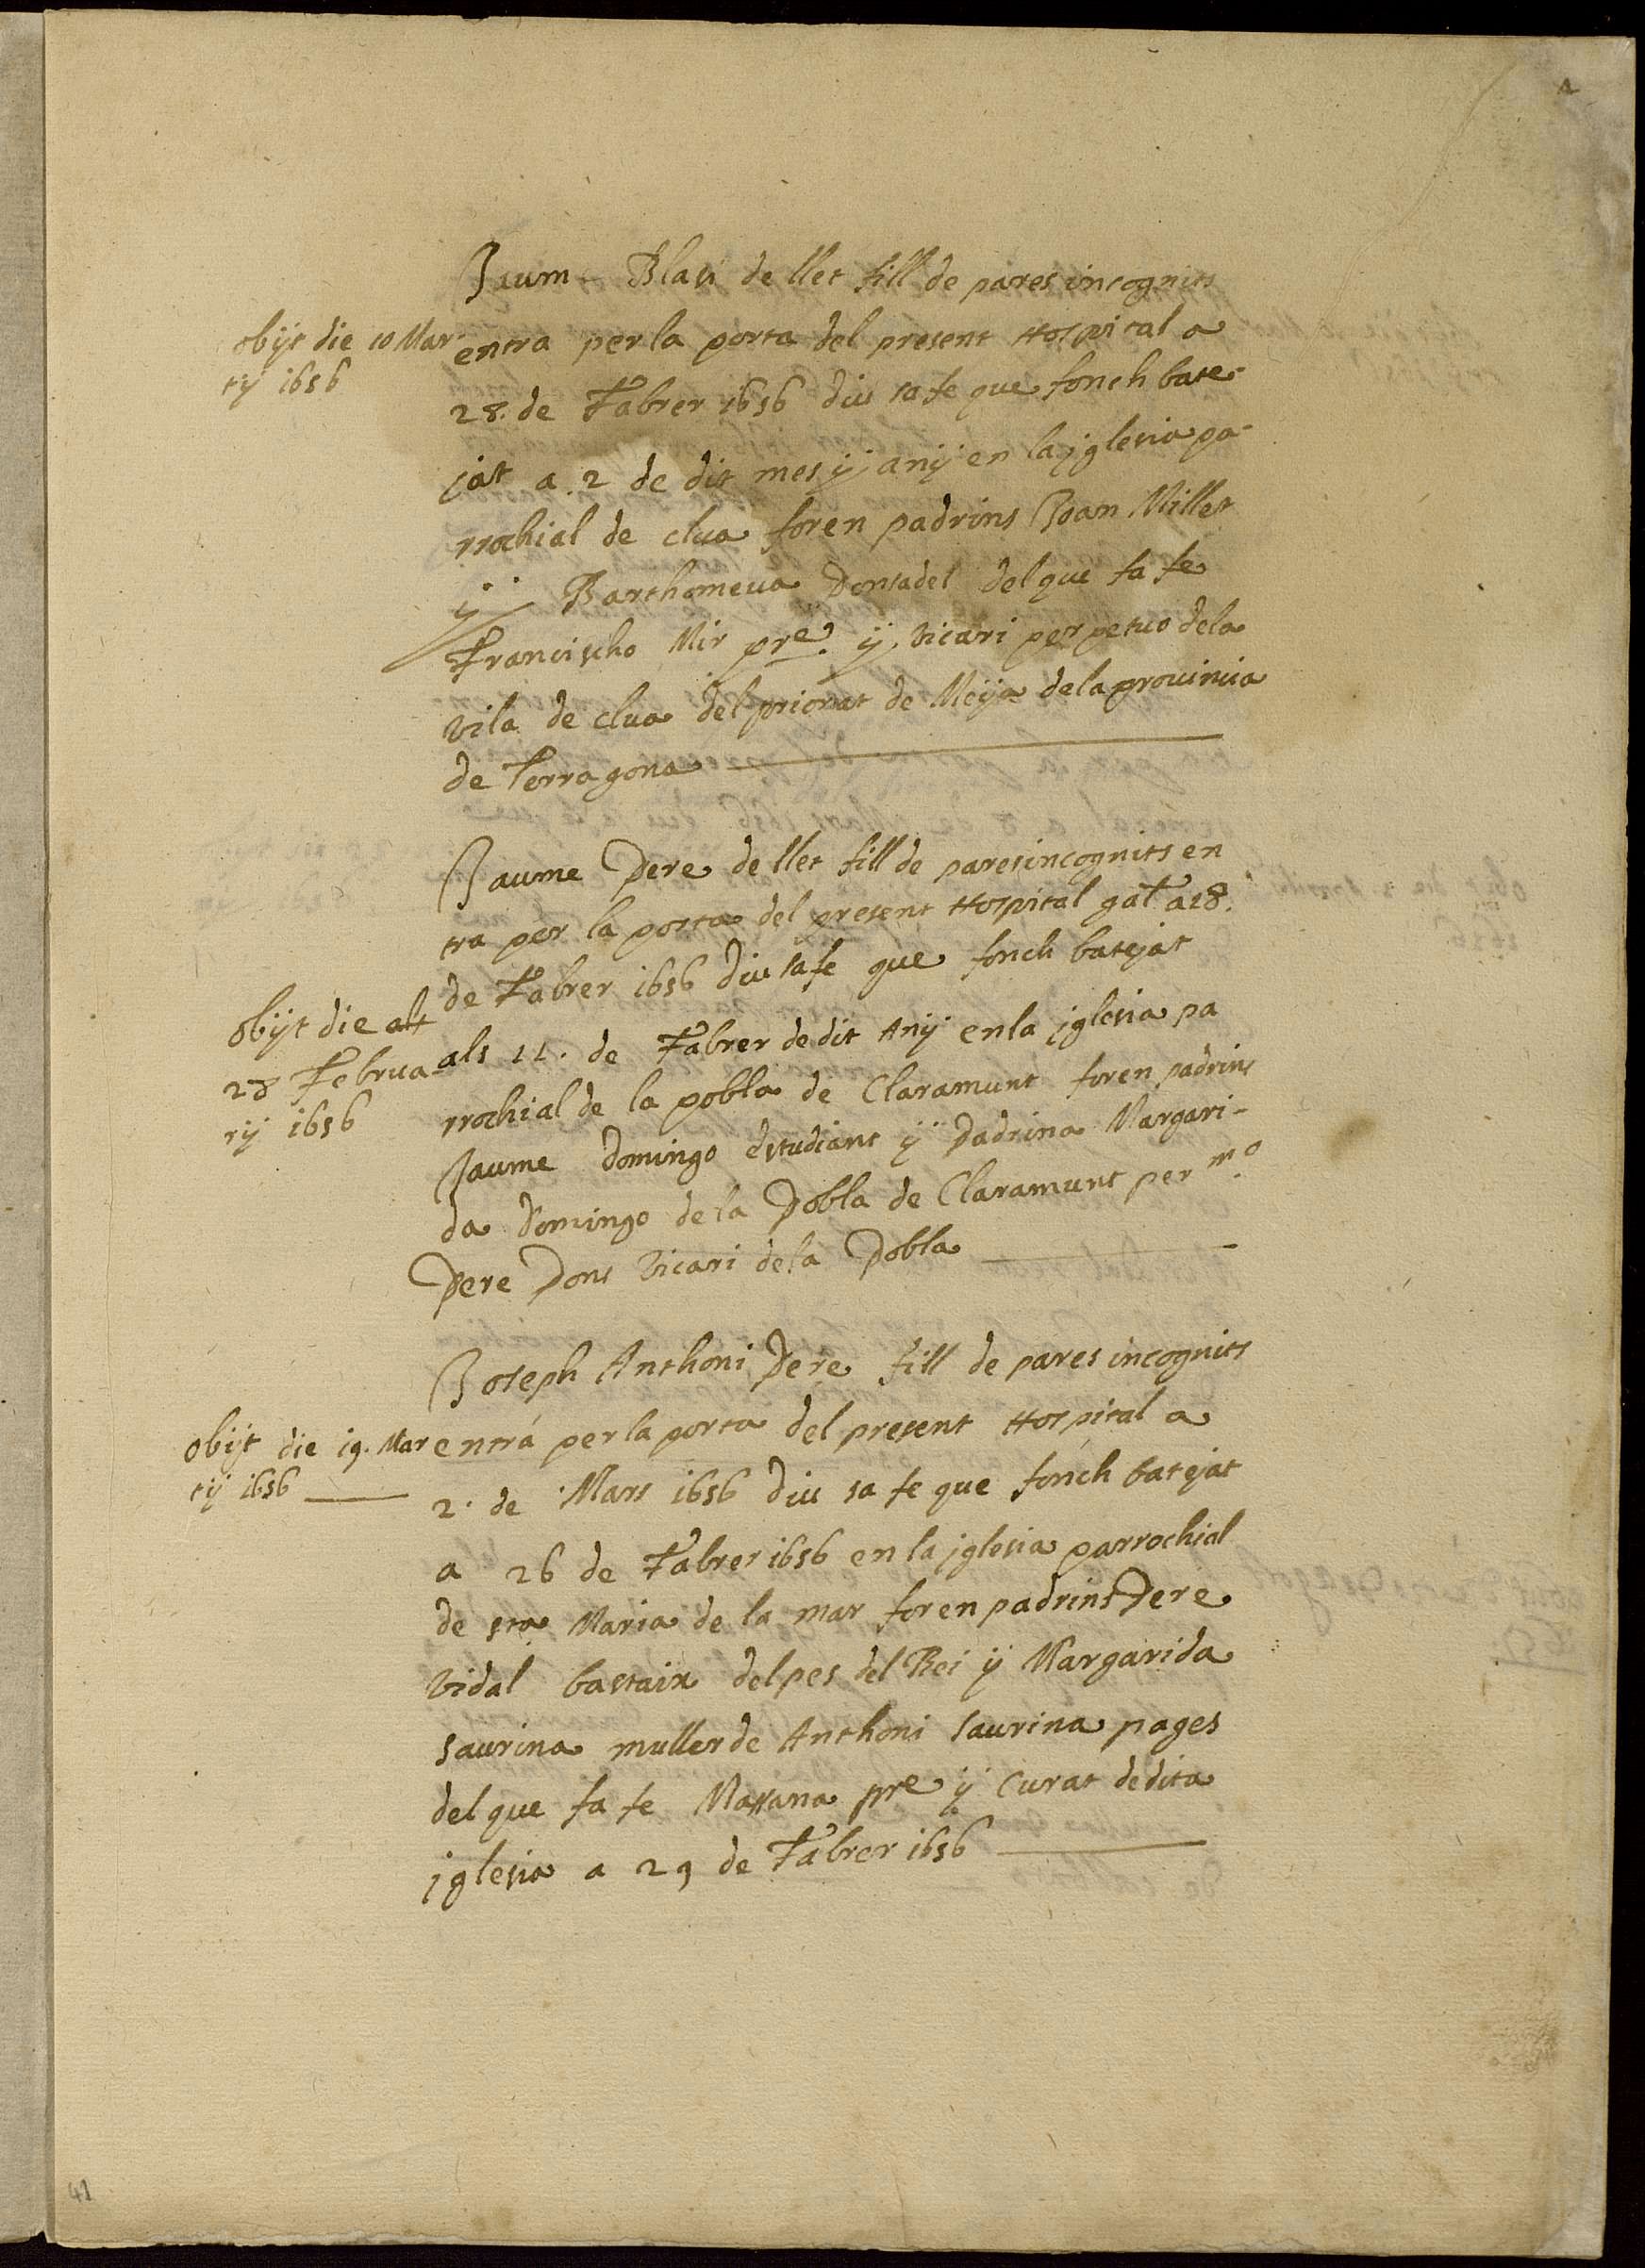 1
Jaume Blasi de llet fill de pares incognits
obijt die 10 Mar-
tij 1656
entra per la porta del present Hospital a
28. de Fabrer 1656 diu sa fe que fonch bate-
jat a 2 de dit mes ÿ anÿ en la jglesia pa-
rrochial de clua foren padrins Joan Millet
ÿ Barthomeua Donsadel del que fa fe
Francischo Mir pre. ÿ vicari perpetuo dela
vila de clua del priorat de Meÿa dela prouincia
de Terragona
Jaume Pere de llet fill de pares incognits en
tra per la porta del present Hospital gal a 28.
de Fabrer 1656 diu sa fe que fonch batejat
obijt die
28 Februa-
rij 1656
als 11. de Fabrer de dit Anÿ en la jglesia pa
rrochial de la pobla de Claramunt foren padrins
Jaume Domingo estudiant ÿ Padrina Margari-
da Domingo de la Pobla de Claramunt per mº.
Pere Pons vicari dela Pobla
Joseph Anthoni Pere fill de pares incognits
obijt die 19. Mar
tij 1656
entrá per la porta del present Hospital a
2. de Mars 1656 diu sa fe que fonch batejat
a 26 de Fabrer 1656 en la jglesia parrochial
de sta Maria de la mar foren padrins Pere
vidal bastaix del pes del Rei ÿ Margarida
saurina muller de Anthoni saurina pages
del que fa fe Massana pre ÿ Curat de dita
jglesia a 29 de Fabrer 1656
41